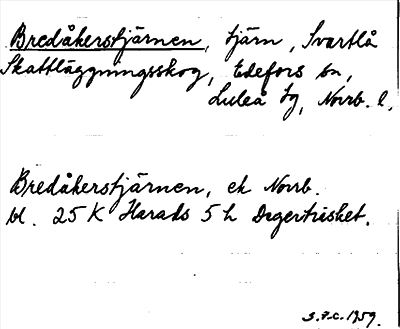 Bredåkerstjärnen, tjärn, Svartlå
Skattläggningsskog, Edefors sn,
Luleå tg, Norrb. l.
Bredåkerstjärnen, ek Norrb.
bl. 25 K Harads 5 h Degertrisket.
S.F.C. 1959.